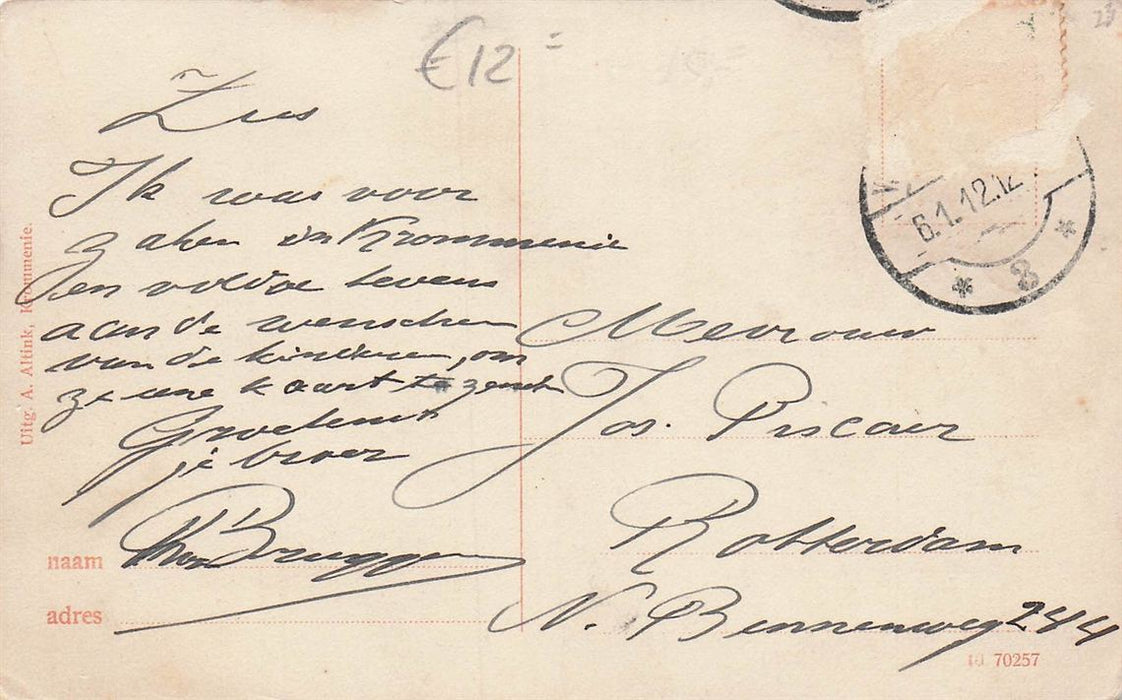 €12=
Zus
Ik was voor
zaken in Krommenie
en voldoe tevens
aan de wenschen
van de kinderen, om
ze une kaart te zenden
Groetend
je broer
Bruggen
naam
adres
Uitg. A. Altink, Krommenie.
6.1.12.12
* 8 *
Mevrouw
Jos. Piscaer
Rotterdam
N. Binnenweg 244
70257